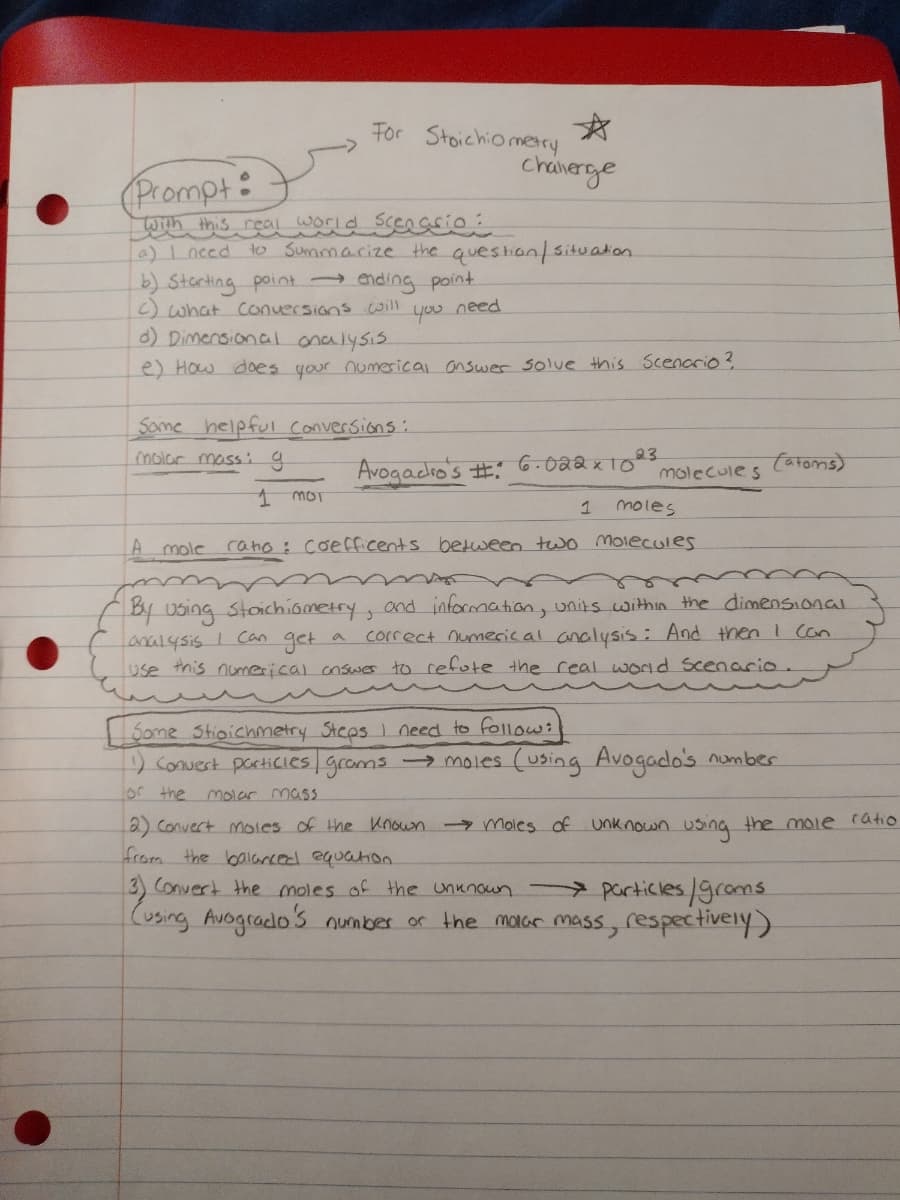 For Stoichiometry
Challenge
Prompt:
With this real world Scenario:
a) I need to Summarize the question/situation
b) Starting point → ending point
c) What Conversions will you need
d) Dimensional analysis
e) How does your numerical answer solve this Scenario?
Some helpful Conversions:
molar mass: g
1 mol
Avogadro's #: 6.022 x 10^23 molecules (atoms)
1 moles
A mole ratio: Coefficents between two molecules
By using stoichiometry, and information, units within the dimensional
analysis I can get a correct numerical analysis: And then I can
use this numerical answer to refute the real world Scenario.
Some Stioichmetry Steps I need to follow:
1) Convert particles/grams → moles (using Avogado's number
or the molar mass
2) Convert moles of the known → moles of unknown using the mole ratio
from the balanced equation
3) Convert the moles of the unknown → particles/grams
(using Avogrado's number or the molar mass, respectively)